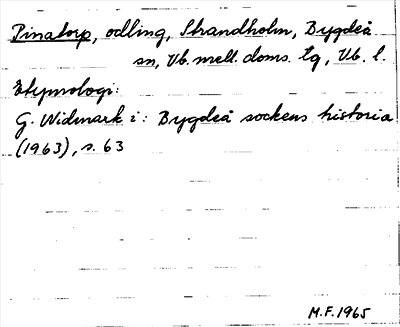 Pinatorp, odling, Strandholm, Bygdeå
sn, Vb. mell. doms. tg, Vb. l.
Etymologi:
G. Widmark i: Bygdeå sockens historia
(1963), s. 63
M.F. 1965